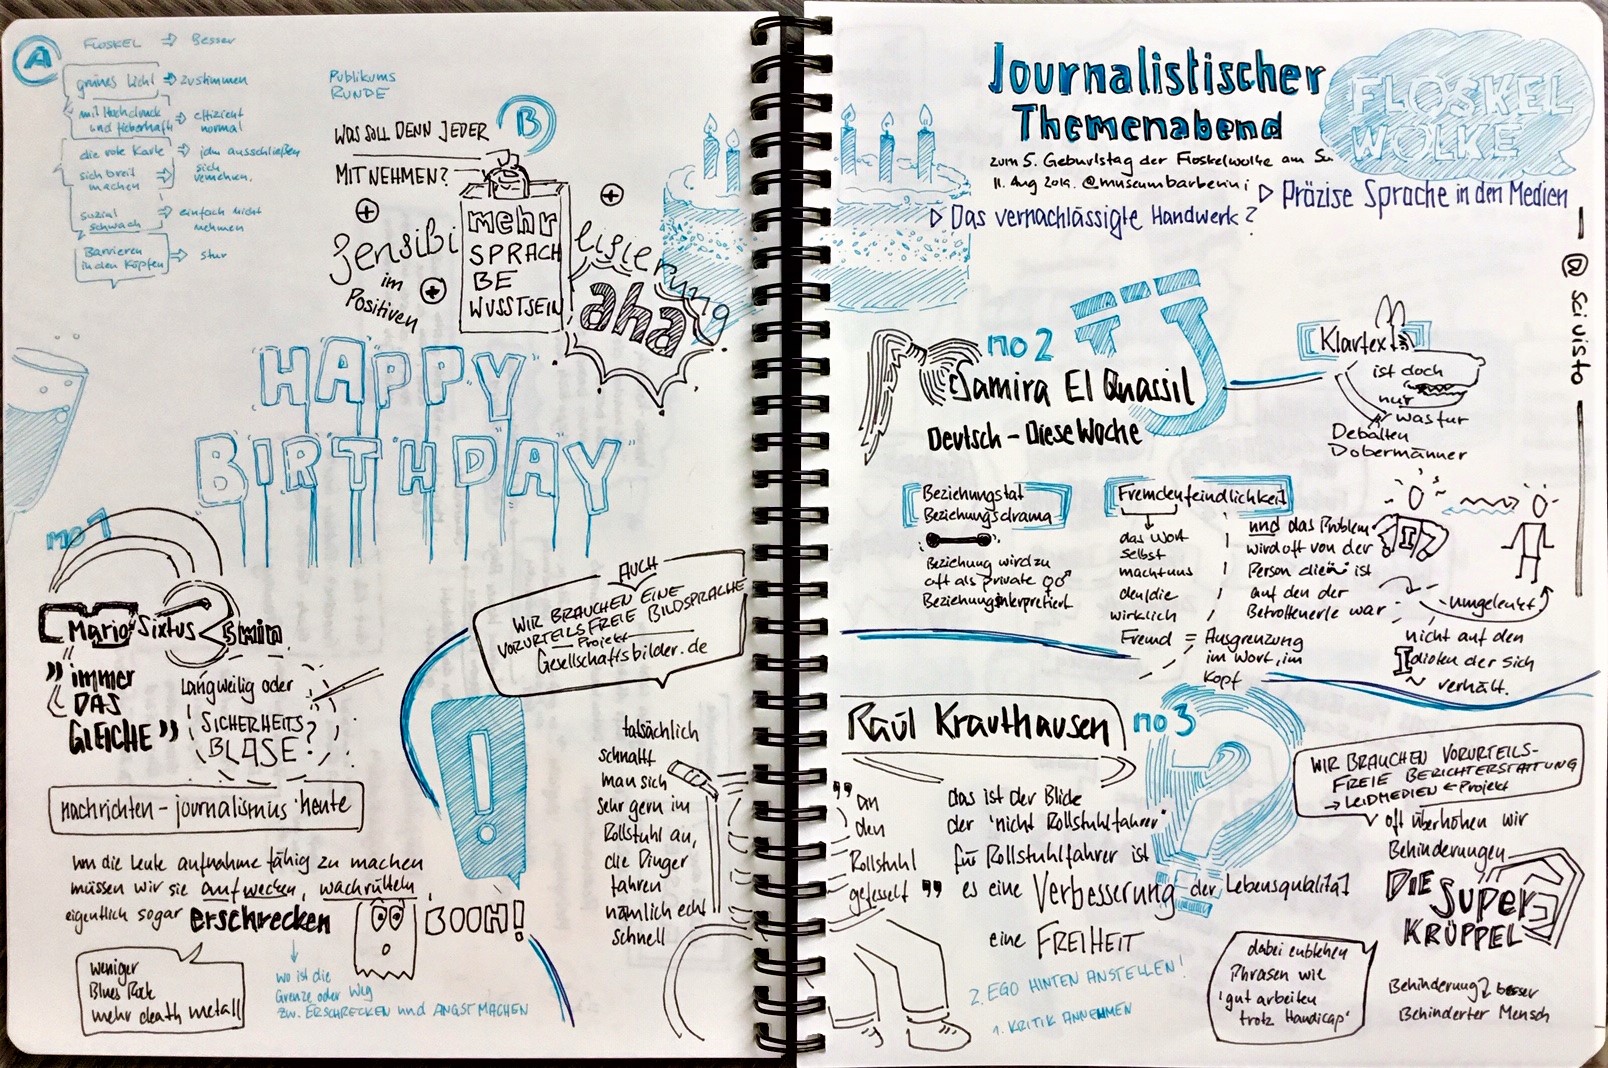 A
FLOSKEL → Besser
grünes Licht → zustimmen
mit Hochdruck → effizient
und fieberhaft normal
die rote Karte → jdn ausschließen
sich breit → sich
machen vermehren.
sozial → einfach nicht
schwach nehmen
Barrieren → stur
in den Köpfen
Publikums
RUNDE
B
WAS SOLL DENN JEDER
MITNEHMEN?
mehr
SPRACH
BE
WUSSTSEIN
Sensibilisierung
im
Positiven
aha
HAPPY
BIRTHDAY
no 1
Mario Sixtus 3 5min
„immer
DAS
GLEICHE”
Langweilig oder
SICHERHEITS?
BLASE
nachrichten-journalismus 'heute'
um die Leute aufnahmefähig zu machen
müssen wir sie aufwecken, wachrütteln,
eigentlich sogar erschrecken
BOOH!
weniger
Blues Rock
mehr death metall
wo ist die
Grenze oder Weg
zw. ERSCHRECKEN und ANGST MACHEN
AUCH
WIR BRAUCHEN EINE
VORURTEILSFREIE BILDSPRACHE
Projekt
Gesellschaftsbilder.de
!
tatsächlich
schnallt
man sich
sehr gern im
Rollstuhl an,
die Dinger
fahren
nämlich echt
schnell
Journalistischer
Themenabend
FLOSKEL
WOLKE
zum 5. Geburtstag der Floskelwolke am
11. Aug 2019. @museumbarberini
▷ Präzise Sprache in den Medien
▷ Das vernachlässigte Handwerk?
@sci visto
no 2
Samira El Quassil
Deutsch - Diese Woche
Klartext
ist doch
nur
was für
Debatten
Dobermänner
Beziehungstat
Beziehungsdrama
Beziehung wird zu
oft als private
Beziehung interpretiert
Fremdenfeindlichkeit
das Wort
selbst
macht uns
den/die
wirklich
Fremd = Ausgrenzung
im Wort, im
Kopf
und das Problem
wird oft von der
Person die ist
auf den der
Betroffene/r war
umgelenkt
nicht auf den
Idioten der sich
verhält.
Raúl Krauthausen
no 3
?
„an
den
Rollstuhl
gefesselt”
das ist der Blick
der 'nicht Rollstuhlfahrer'
für Rollstuhlfahrer ist
es eine Verbesserung der Lebensqualität
eine FREIHEIT
2. EGO HINTEN ANSTELLEN!
1. KRITIK ANNEHMEN
WIR BRAUCHEN VORURTEILS-
FREIE BERICHTERSTATTUNG
→ LEIDMEDIEN ← Projekt
oft überhöhen wir
Behinderungen
DIE
SUPER
KRÜPPEL
dabei entstehen
Phrasen wie
'gut arbeiten
trotz Handicap'
Behinderung? besser
Behinderter Mensch